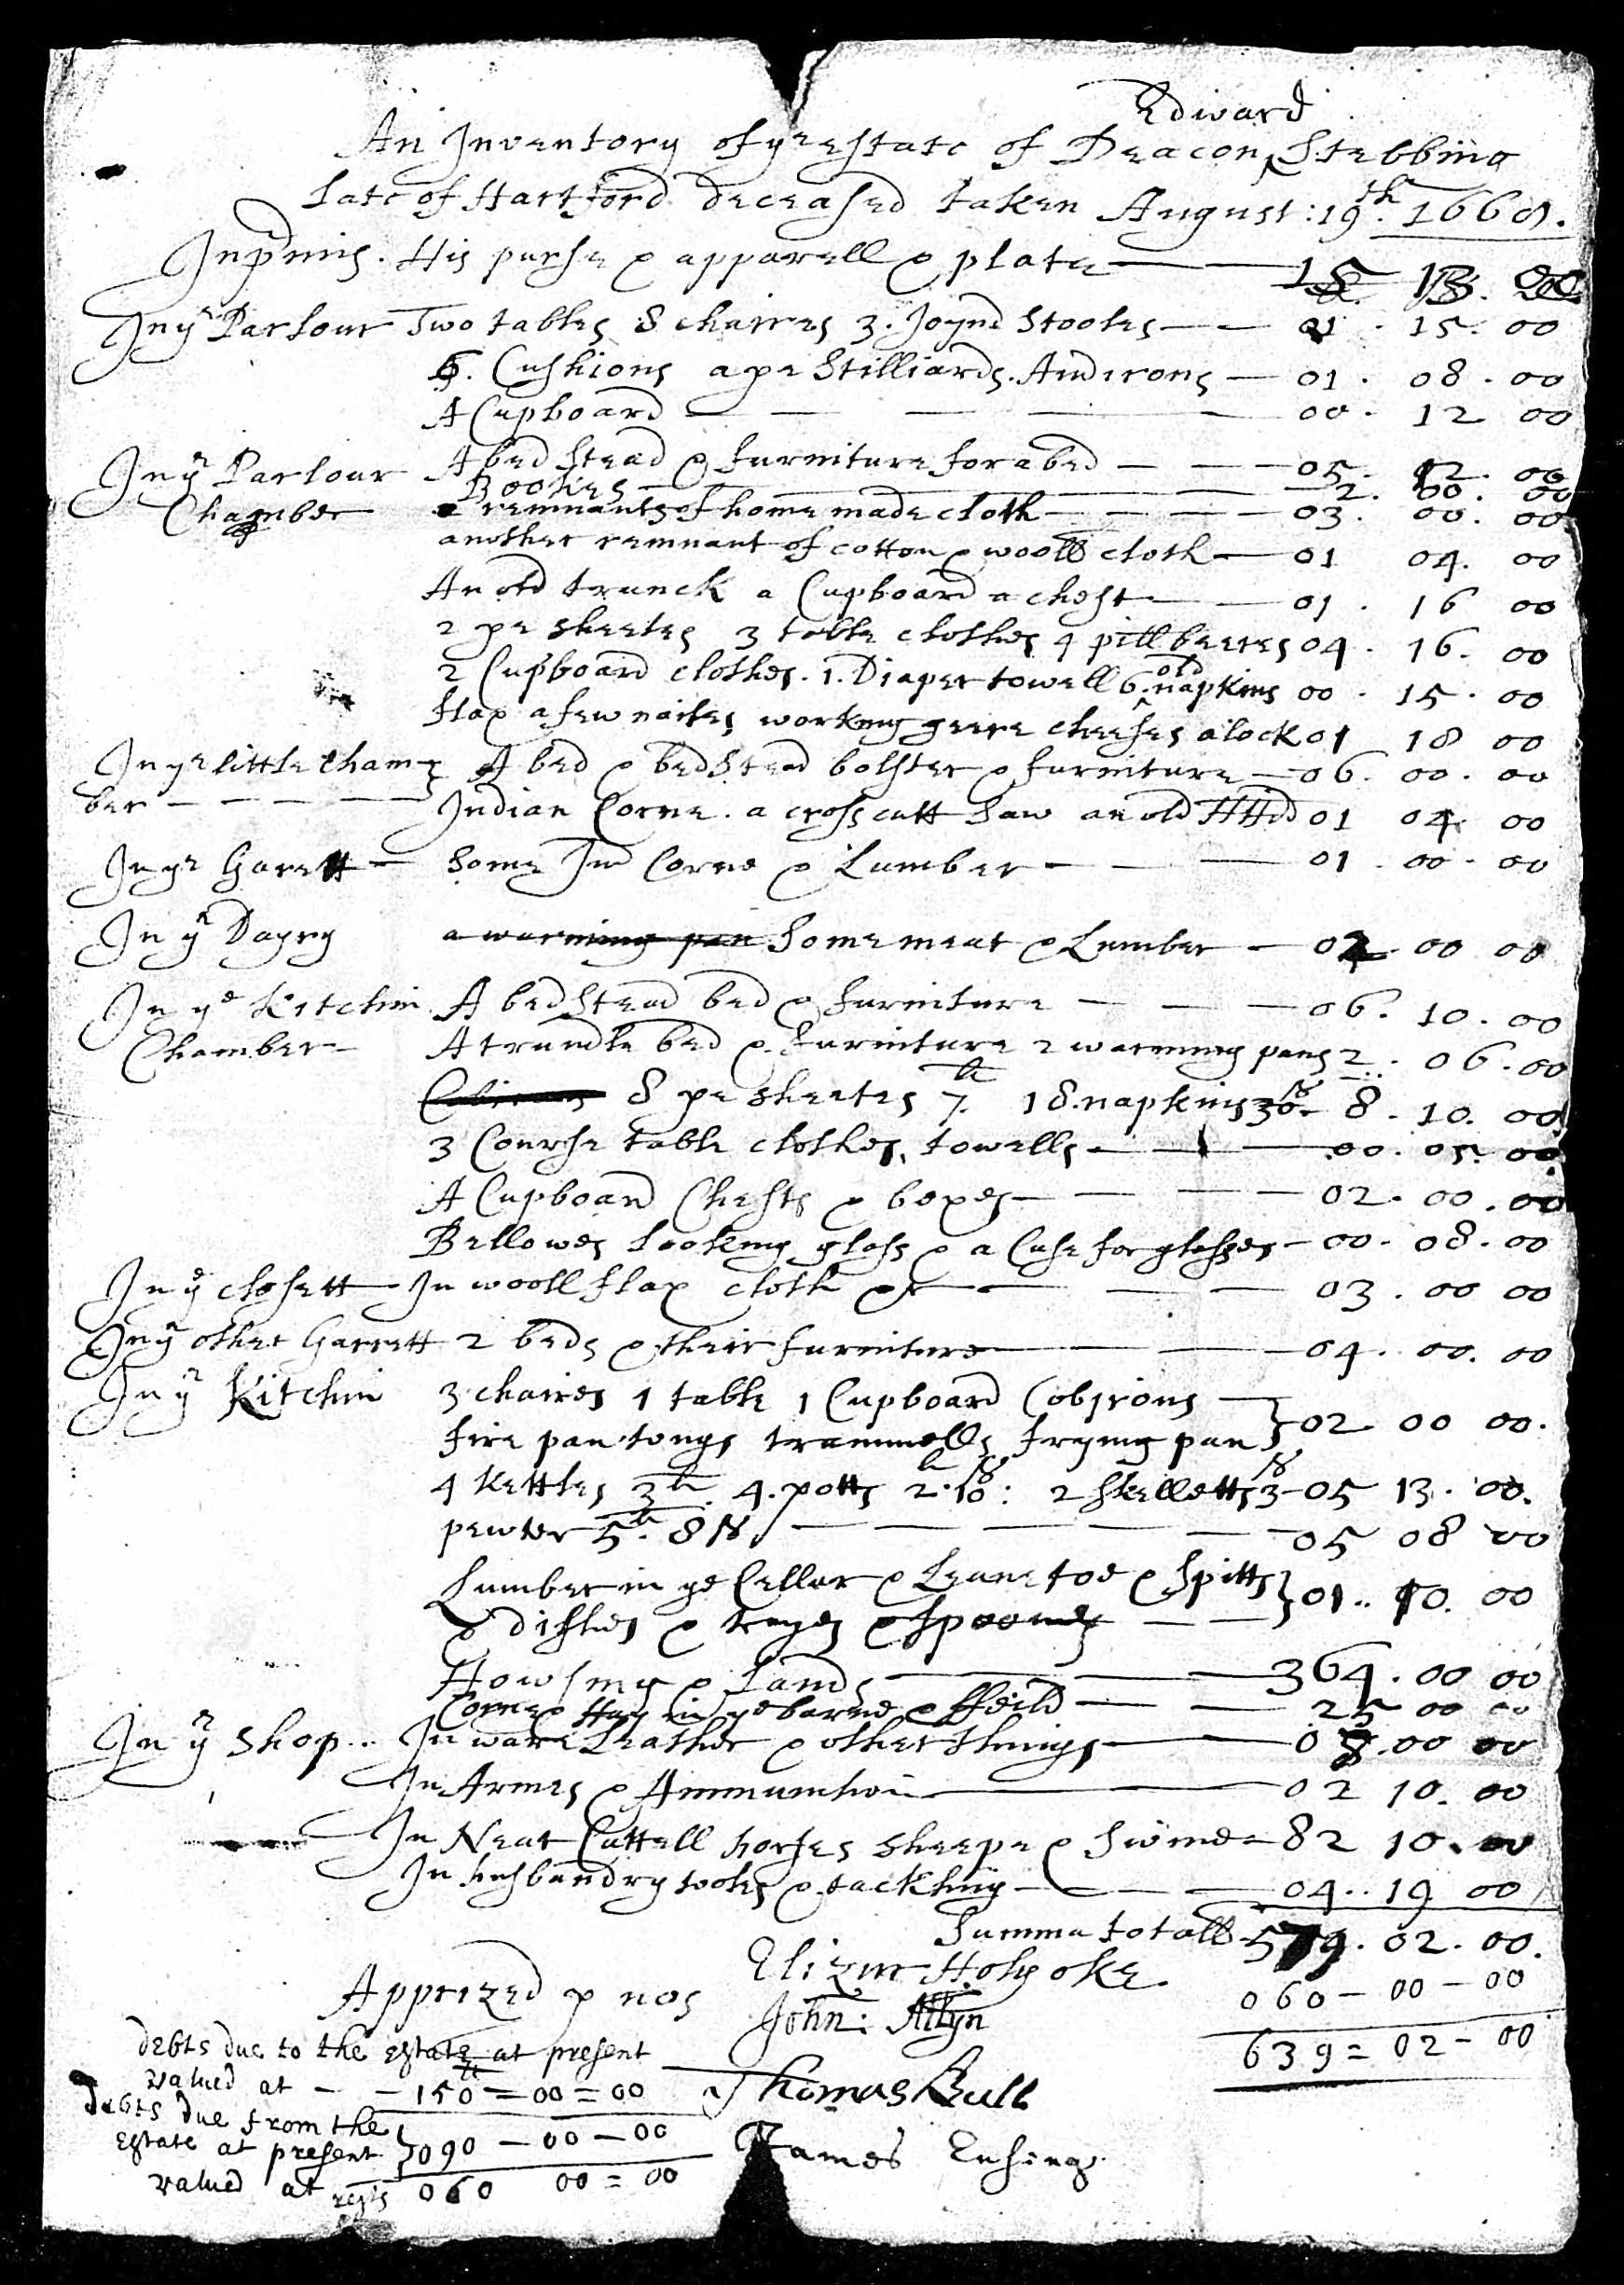 Edward
An Inventory of ye estate of Deacon ^ Stebbing
late of Hartford deceased taken August : 19th 1668.
Inpmis. His purse & apparell & plate — 15 13. 00
In ye Parlour Two tables 8 chaires 3. Joynd Stooles — 01 . 15. 00
6. Cushions a pe Stilliards. Andirons — 01 . 08 . 00
A Cupboard — 00 . 12 00
In ye Parlour A bed stead & furniture for a bed — 05. 12. 00
Bookes — 2. 00. 00
Chamber remnants of home made cloth — 03. 00. 00
another remnant of cotton & wooll cloth — 01 04. 00
An old trunck a Cupboard a chest — 01 . 16 00
2 pe sheetes 3 table clothes 4 pillbeeres 04 . 16. 00
old
2 Cupboard clothes. 1. Diaper towell 6. ^ napkins 00 . 15 . 00
flax a few nailes working geere cheeses a lock 01 18 00
In ye little cham- A bed & bedstead bolster & furniture — 06. 00. 00
ber — Indian Corne. a cross cutt saw an old HHd 01 04. 00
In ye Garett — Some Ind Corne & Lumber — 01 . 00 . 00
In ye Dayry a warming pan Some meat & Lumber — 02. 00 00
In ye Kitchin A bedstead bed & furniture — 06. 10. 00
Chamber — A trundle bed & furniture 2 warming pans 2 . 06. 00
8 pe sheetes 7li. 18. napkins 30s — 8 . 10. 00
3 Course table clothes, towells — 00. 05. 00
A Cupboard Chests & boxes — 02. 00. 00
Bellowes looking glass & a Case for glasses — 00. 08. 00
In ye closett In wooll flax cloth &c — 03 . 00 00
In ye other Garrett 2 beds & their furniture — 04. 00. 00
In ye Kitchin 3 chaires 1 table 1 Cupboard Cobirons —
fire pan tongs trammells frying pan } 02 00 00.
4 kettles 3li 4. potts 2li. 10s : 2 skelletts 3s — 05 13 . 00.
pewter 5li. 8s. — 05 08 00
Lumber in ye Cellar & Leanetoe & spitts
& dishes & trayes & spoones — } 01.. 10. 00
Howsing & Lands — 364. 00 00
Corne & Hay in ye barne & ffeild — 25 00 00
In ye Shop .. In ware Leather & other things — 08. 00 00
In Armes & Ammunition — 02 10. 00
In Neat Cattell horses sheepe & swine — 82 10. 00
In husbandry tooles & tackling — 04.. 19 00
Summa totall 579. 02. 00.
Apprized p nos Elizur Holyoke 060 — 00 — 00
John: Allyn 639 = 02 — 00
debts due to the estate at present
valued at — 150li = 00 = 00 Thomas Bull
debts due from the
Estate at present } 090 — 00 — 00 James Ensing
valued at rests 060 00 = 00